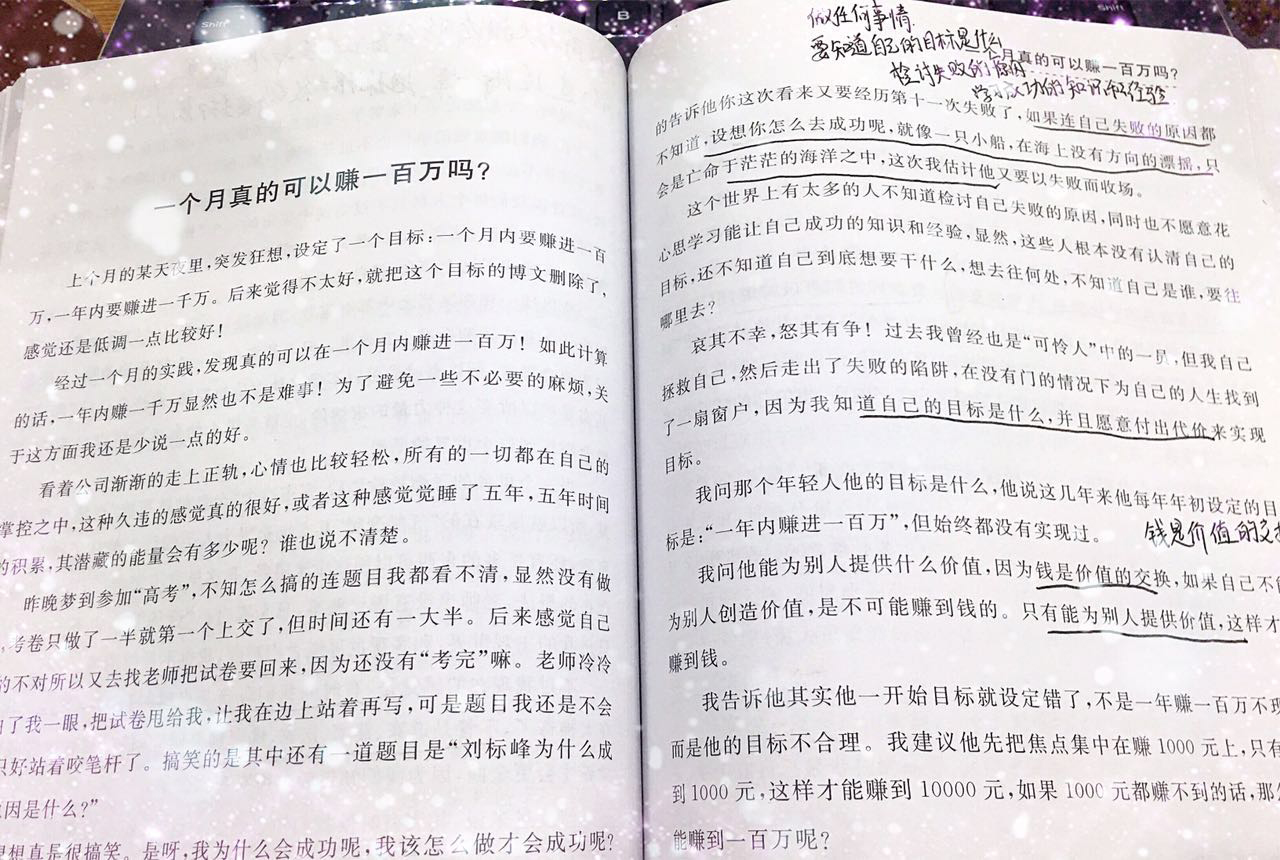 一个月真的可以赚一百万吗?
上个月的某天夜里,突发狂想,设定了一个目标:一个月内要赚进一百
万,一年内要赚进一千万。后来觉得不太好,就把这个目标的博文删除了,
感觉还是低调一点比较好!
经过一个月的实践,发现真的可以在一个月内赚进一百万!如此计算
的话,一年内赚一千万显然也不是难事!为了避免一些不必要的麻烦,关
于这方面我还是少说一点的好。
看着公司渐渐的走上正轨,心情也比较轻松,所有的一切都在自己的
掌控之中,这种久违的感觉真的很好,或者这种感觉觉睡了五年,五年时间
的积累,其潜藏的能量会有多少呢?谁也说不清楚。
昨晚梦到参加“高考”,不知怎么搞的连题目我都看不清,显然没有做
,考卷只做了一半就第一个上交了,但时间还有一大半。后来感觉自己
的不对所以又去找老师把试卷要回来,因为还没有“考完”嘛。老师冷冷
了我一眼,把试卷甩给我,让我在边上站着再写,可是题目我还是不会
只好站着咬笔杆了。搞笑的是其中还有一道题目是“刘标峰为什么成
因是什么?”
想真是很搞笑。是呀,我为什么会成功呢,我该怎么做才会成功呢?
Shift
B
Shift
做任何事情
要知道自己的目标是什么
检讨失败的原因
学习成功的知识和经验
个月真的可以赚一百万吗?
的告诉他你这次看来又要经历第十一次失败了,如果连自己失败的原因都
不知道,设想你怎么去成功呢,就像一只小船,在海上没有方向的漂摇,只
会是亡命于茫茫的海洋之中,这次我估计他又要以失败而收场。
这个世界上有太多的人不知道检讨自己失败的原因,同时也不愿意花
心思学习能让自己成功的知识和经验,显然,这些人根本没有认清自己的
目标,还不知道自己到底想要干什么,想去往何处,不知道自己是谁,要往
哪里去?
哀其不幸,怒其有争!过去我曾经也是“可怜人”中的一员,但我自己
拯救自己,然后走出了失败的陷阱,在没有门的情况下为自己的人生找到
了一扇窗户,因为我知道自己的目标是什么,并且愿意付出代价来实现
目标。
我问那个年轻人他的目标是什么,他说这几年来他每年年初设定的目
标是:“一年内赚进一百万”,但始终都没有实现过。
钱是价值的交
我问他能为别人提供什么价值,因为钱是价值的交换,如果自己不能
为别人创造价值,是不可能赚到钱的。只有能为别人提供价值,这样才
赚到钱。
我告诉他其实他一开始目标就设定错了,不是一年赚一百万不现
而是他的目标不合理。我建议他先把焦点集中在赚1000元上,只有
到1000元,这样才能赚到10000元,如果1000元都赚不到的话,那怎
能赚到一百万呢?